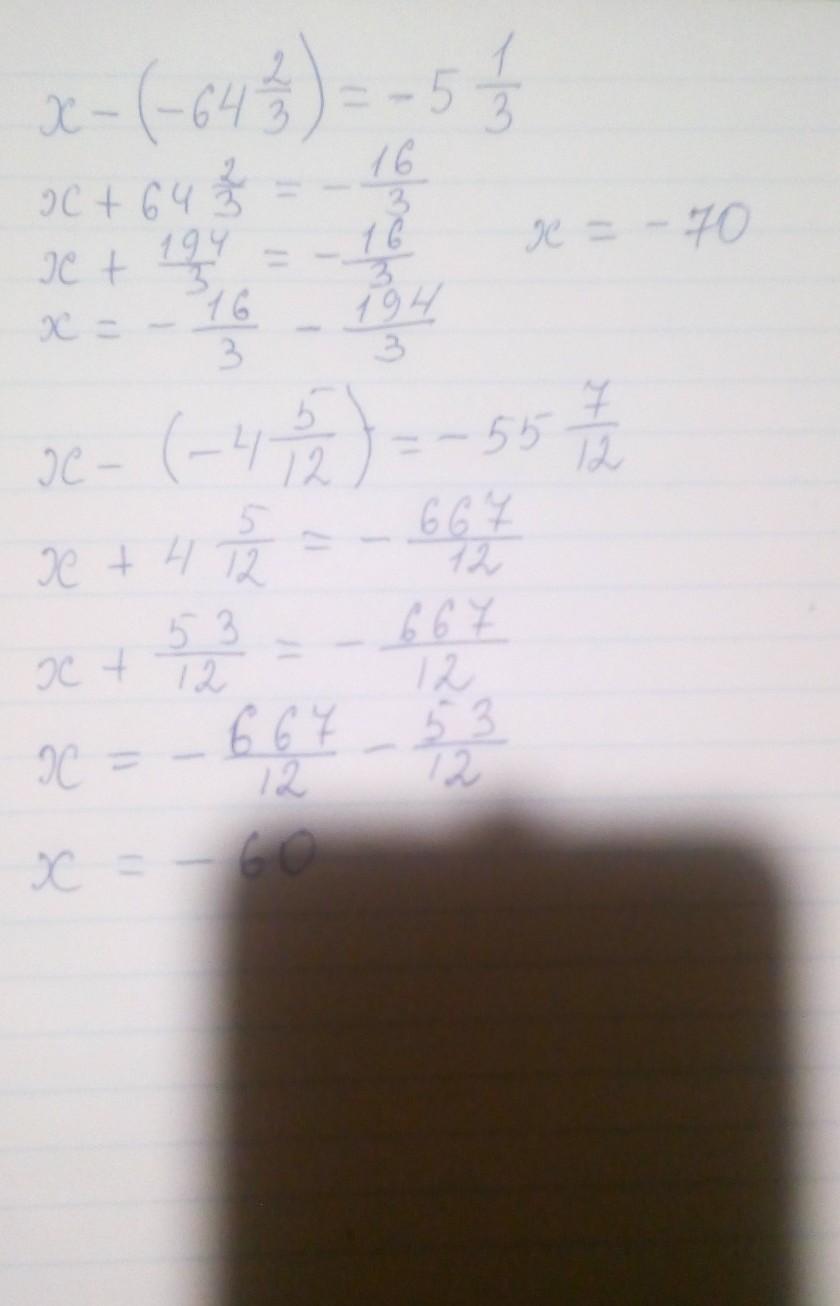 x - (-64 2/3) = -5 1/3
x + 64 2/3 = - 16/3
x + 194/3 = - 16/3
x = - 16/3 - 194/3
x = -70
x - (-4 5/12) = -55 7/12
x + 4 5/12 = - 667/12
x + 53/12 = - 667/12
x = - 667/12 - 53/12
x = - 60